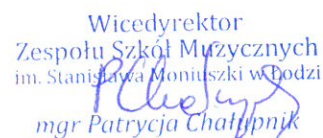 Wicedyrektor
Zespołu Szkół Muzycznych
im. Stanisława Moniuszki w Łodzi
mgr Patrycja Chałupnik